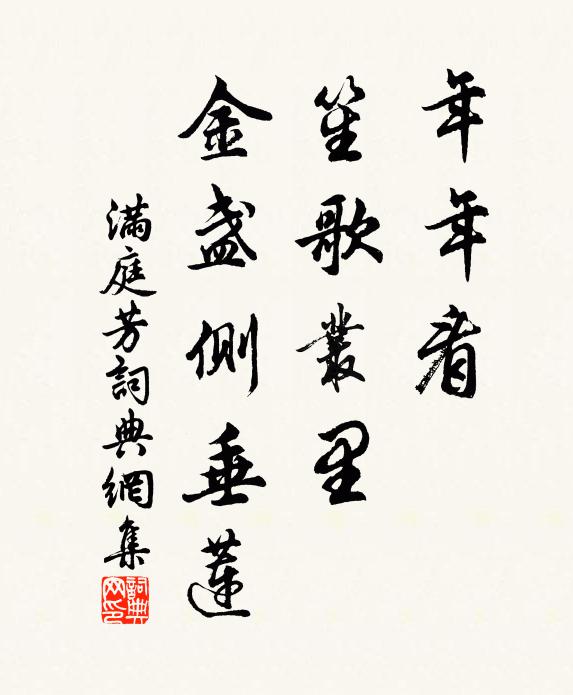 年年看
笙歌叢里
金盞側垂蓮
滿庭芳詞典網集
詞典网印